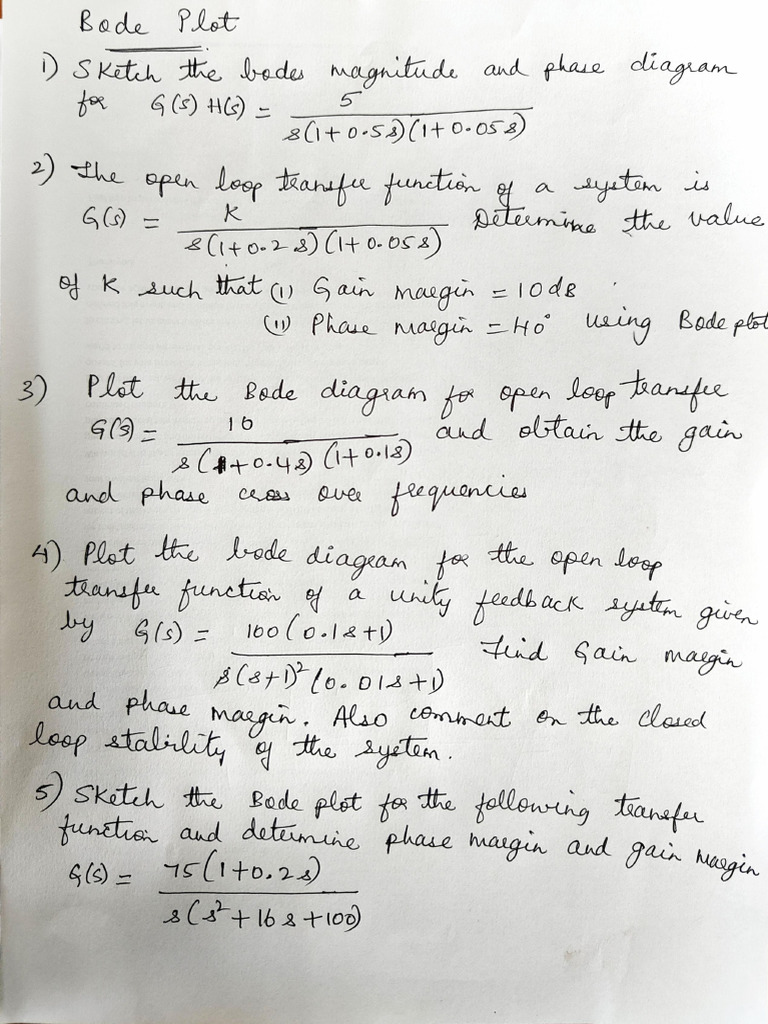 Bode Plot
1) Sketch the bodes magnitude and phase diagram
for G(s) H(s) = 5 / s(1+0.5s)(1+0.05s)
2) The open loop transfer function of a system is
G(s) = K / s(1+0.2s)(1+0.05s) Determine the value
of K such that (i) Gain margin = 10dB
(ii) Phase margin = 40° using Bode plot
3) Plot the Bode diagram for open loop transfer
G(s) = 10 / s(1+0.4s)(1+0.1s) and obtain the gain
and phase cross over frequencies
4) Plot the bode diagram for the open loop
transfer function of a unity feedback system given
by G(s) = 100(0.1s+1) / s(s+1)²(0.01s+1) Find Gain margin
and phase margin. Also comment on the closed
loop stability of the system.
5) Sketch the Bode plot for the following transfer
function and determine phase margin and gain margin
G(s) = 75(1+0.2s) / s(s²+16s+100)